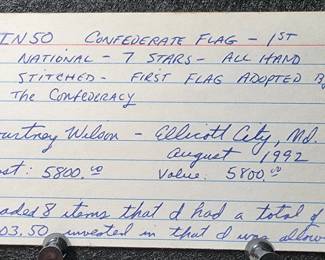 IN50 CONFEDERATE FLAG - 1ST
NATIONAL - 7 STARS - ALL HAND
STITCHED - FIRST FLAG ADOPTED By
The CONFEDERACY
urtney Wilson - Ellicott City, Md.
August 1992
st: 5800.00 Value: 5800.00
aded 8 items that I had a total of
03.50 invested in that I was allow